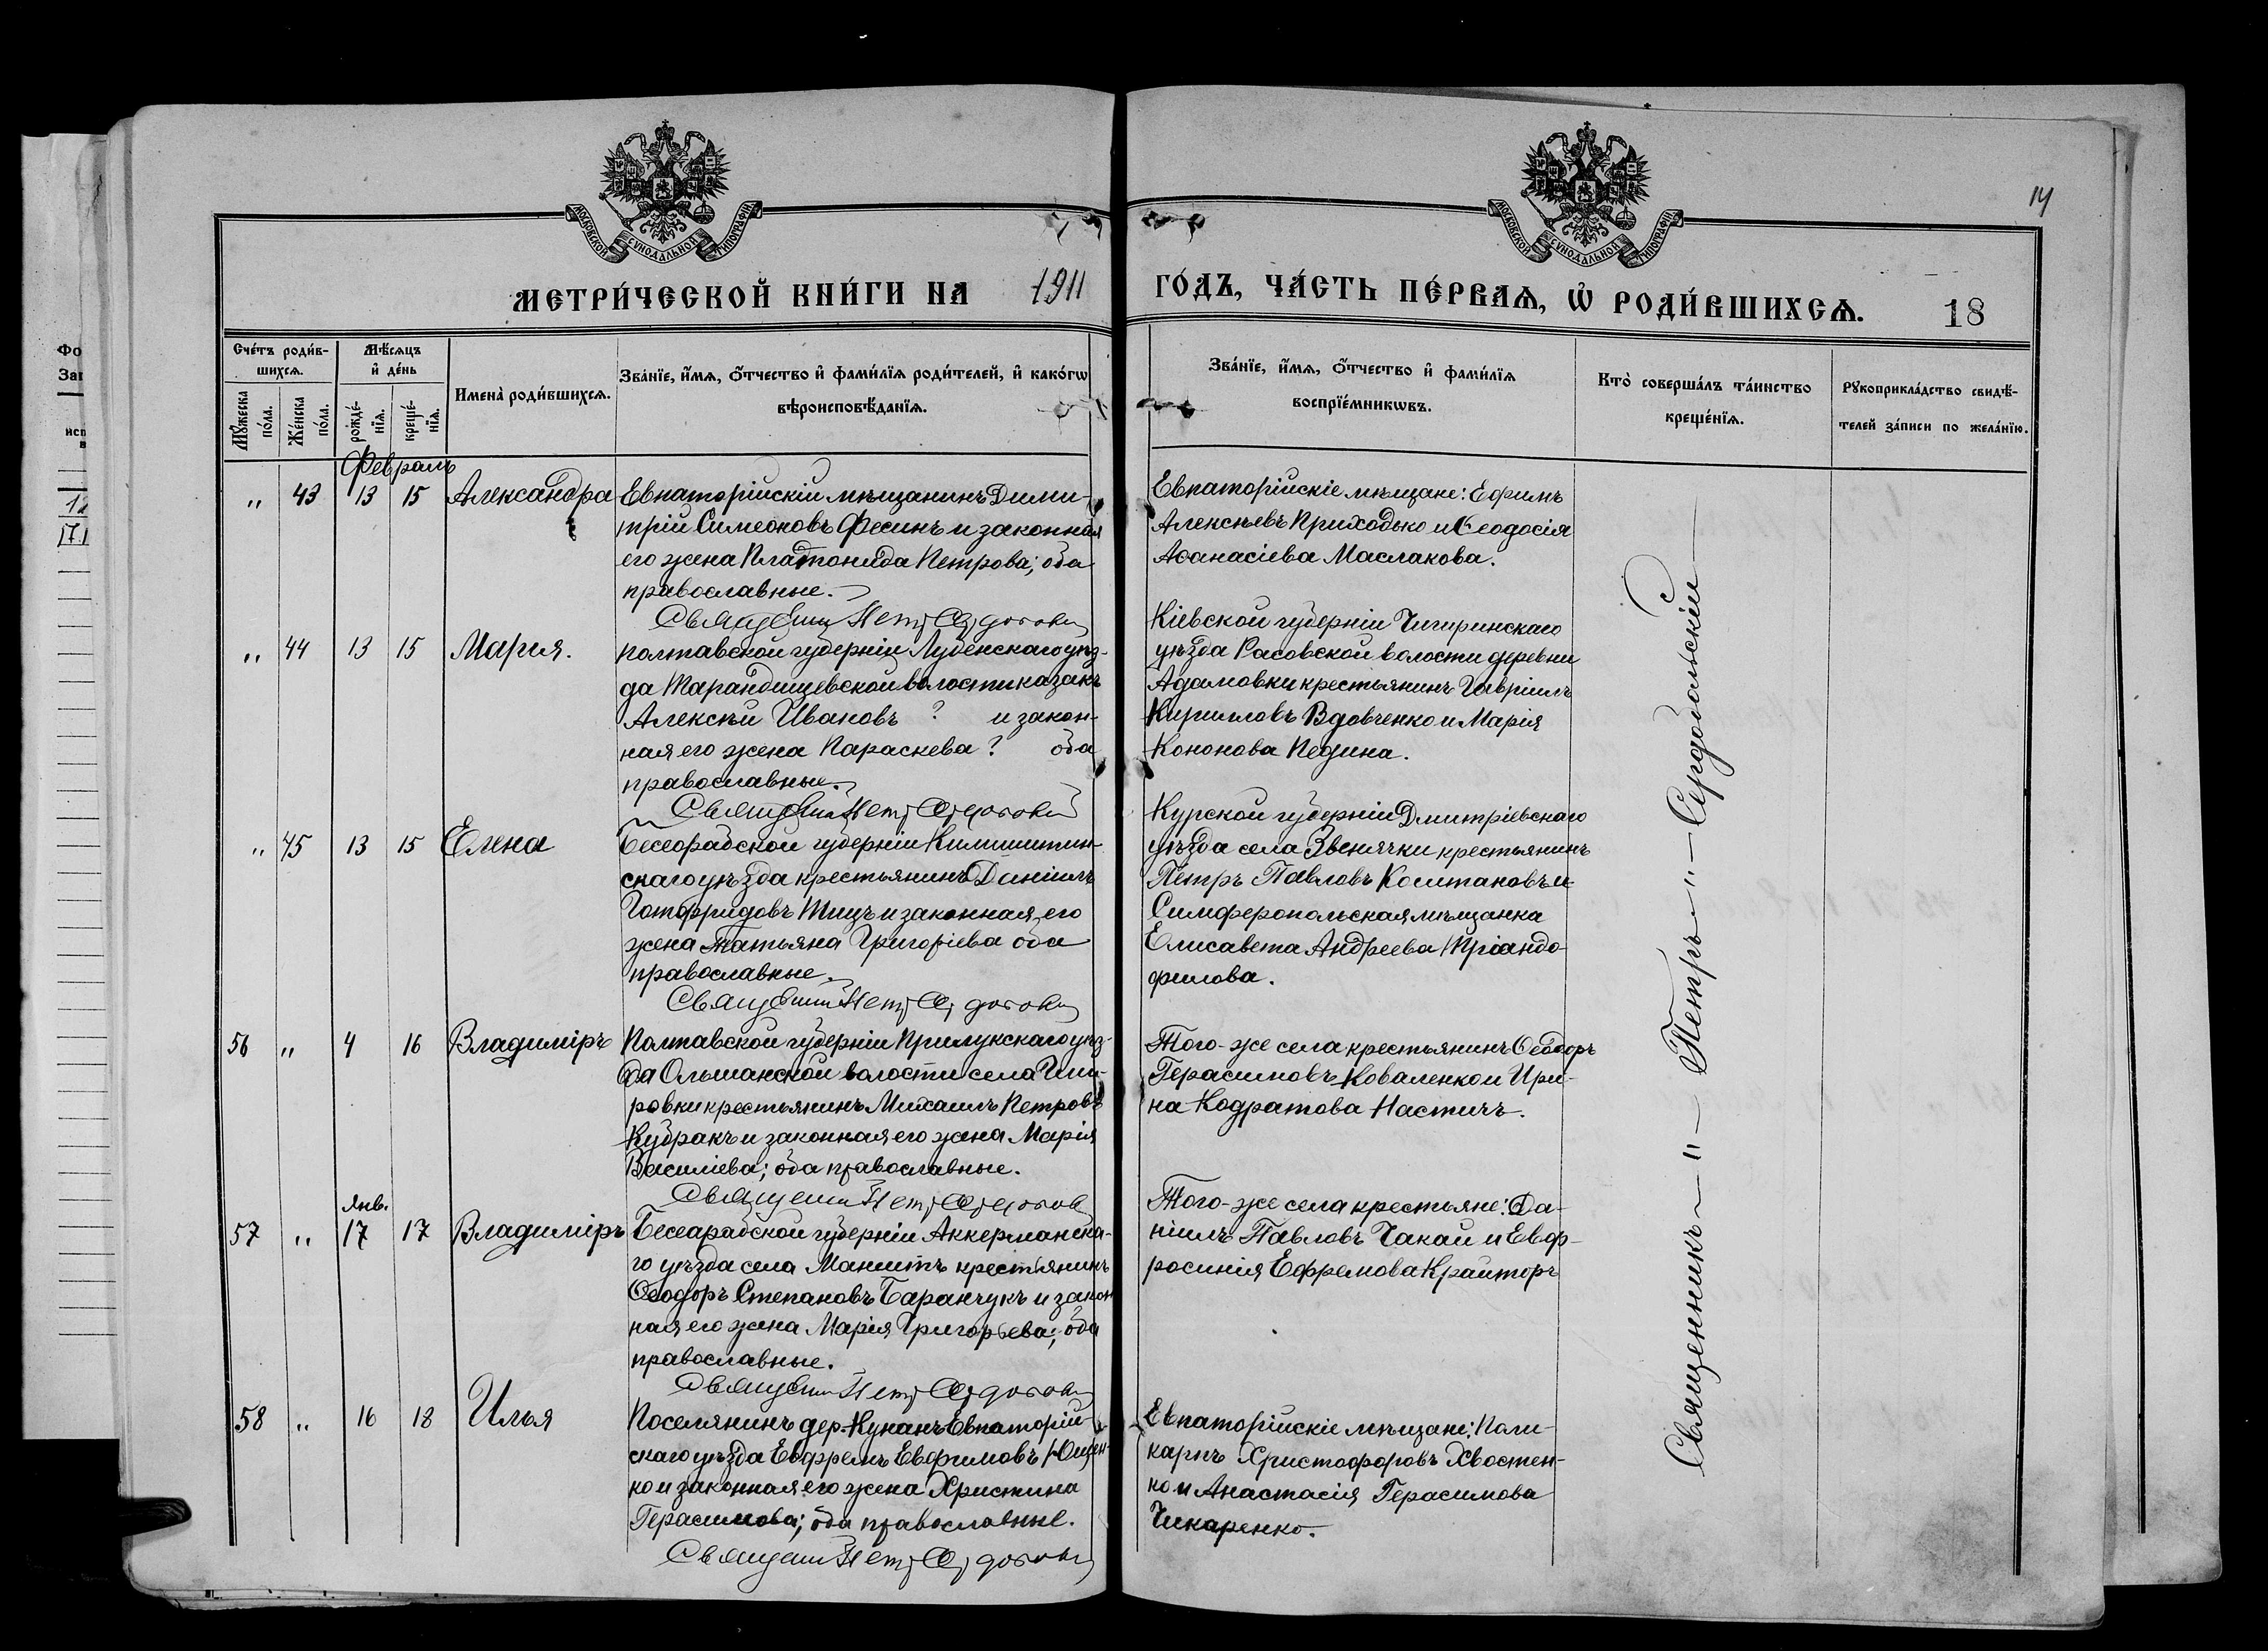 14
МОСКОВСКОЙ СУНОДАЛЬНОЙ ТИПОГРАФІИ
МОСКОВСКОЙ СУНОДАЛЬНОЙ ТИПОГРАФІИ
МЕТРИ́ЧЕСКОЙ КНИ́ГИ НА 1911 ГО́ДЪ, ЧА́СТЬ ПЕ́РВАѦ, Ѡ҆ РОДИ́ВШИХСѦ. 18
Сче́тъ роди́в-
шихсѧ.
Мꙋ́жеска по́ла.
Же́нска по́ла.
Мѣ́сѧцъ
и҆ де́нь
рожде́-
нїѧ.
креще́-
нїѧ.
Имена̀ роди́вшихсѧ.
Зва́нїе, и҆́мѧ, ѻ҆́тчество и҆ фами́лїѧ роди́телей, и҆ како́гѡ
вѣроисповѣ́данїѧ.
Зва́нїе, и҆́мѧ, ѻ҆́тчество и҆ фами́лїѧ
воспрїе́мникѡвъ.
Кто̀ соверша́лъ та́инство
креще́нїѧ.
Рꙋкоприкла́дство свидѣ́-
телей за́писи по жела́нїю.
Февраль
" 43 13 15 Александра
Евпаторійскій мѣщанинъ Дими-
трій Симеоновъ Фесинъ и законная
его жена Платонида Петрова; оба
православные.
Евпаторійскіе мѣщане: Ефимъ
Алексѣевъ Приходько и Ѳеодосія
Аѳанасіева Маслакова.
" 44 13 15 Мария.
Полтавской губерніи Лубенскаго уѣз-
да Тарандицевской волости казакъ
Алексѣй Ивановъ ? и закон-
ная его жена Параскева ? оба
православные.
Кіевской губерніи Чигиринскаго
уѣзда Расовской волости деревни
Адамовки крестьянинъ Гавріилъ
Кирилловъ Вдовченко и Марія
Кононова Педина.
" 45 13 15 Елена
губерніи
скаго уѣзда крестьянинъ Даніилъ
Готфридовъ Тицъ и законная его
жена Татьяна Григоріева оба
православные.
Курской губерніи Дмитріевскаго
уѣзда села Звенячки крестьянинъ
Петръ Павловъ Колтановъ и
Симферопольская мѣщанка
Елисавета Андреева Тріандо-
филова.
56 " 4 16 Владиміръ
Полтавской губерніи Прилукскаго уѣз-
да Ольшанской волости села
крестьянинъ Михаилъ Петровъ
Кубракъ и законная его жена Марія
Василіева; оба православные.
Того-же села крестьянинъ Ѳеодоръ
Герасимовъ Коваленко и Ири-
на Кодратова Настичъ.
Янв.
57 " 17 17 Владиміръ
Бессарабской губерніи Аккерманска-
го уѣзда села крестьянинъ
Ѳеодоръ Степановъ Баранчукъ и закон
ная его жена Марія Григорьева; оба
православные.
Того-же села крестьяне: Да-
ніилъ Павловъ Чакай и Евф-
росинія Ефремова Крайторъ
58 " 16 18 Илья
Поселянинъ дер. Кунанъ Евпаторій-
скаго уѣзда Евфремъ Евфимовъ Ющен-
ко и законная его жена Христина
Герасимова; оба православные.
Евпаторійскіе мѣщане: Поли-
карпъ Христофоровъ Хвостен-
ко и Анастасія Герасимова
Чикаренко.
Священникъ — " — Петръ — " — Сердобольскій